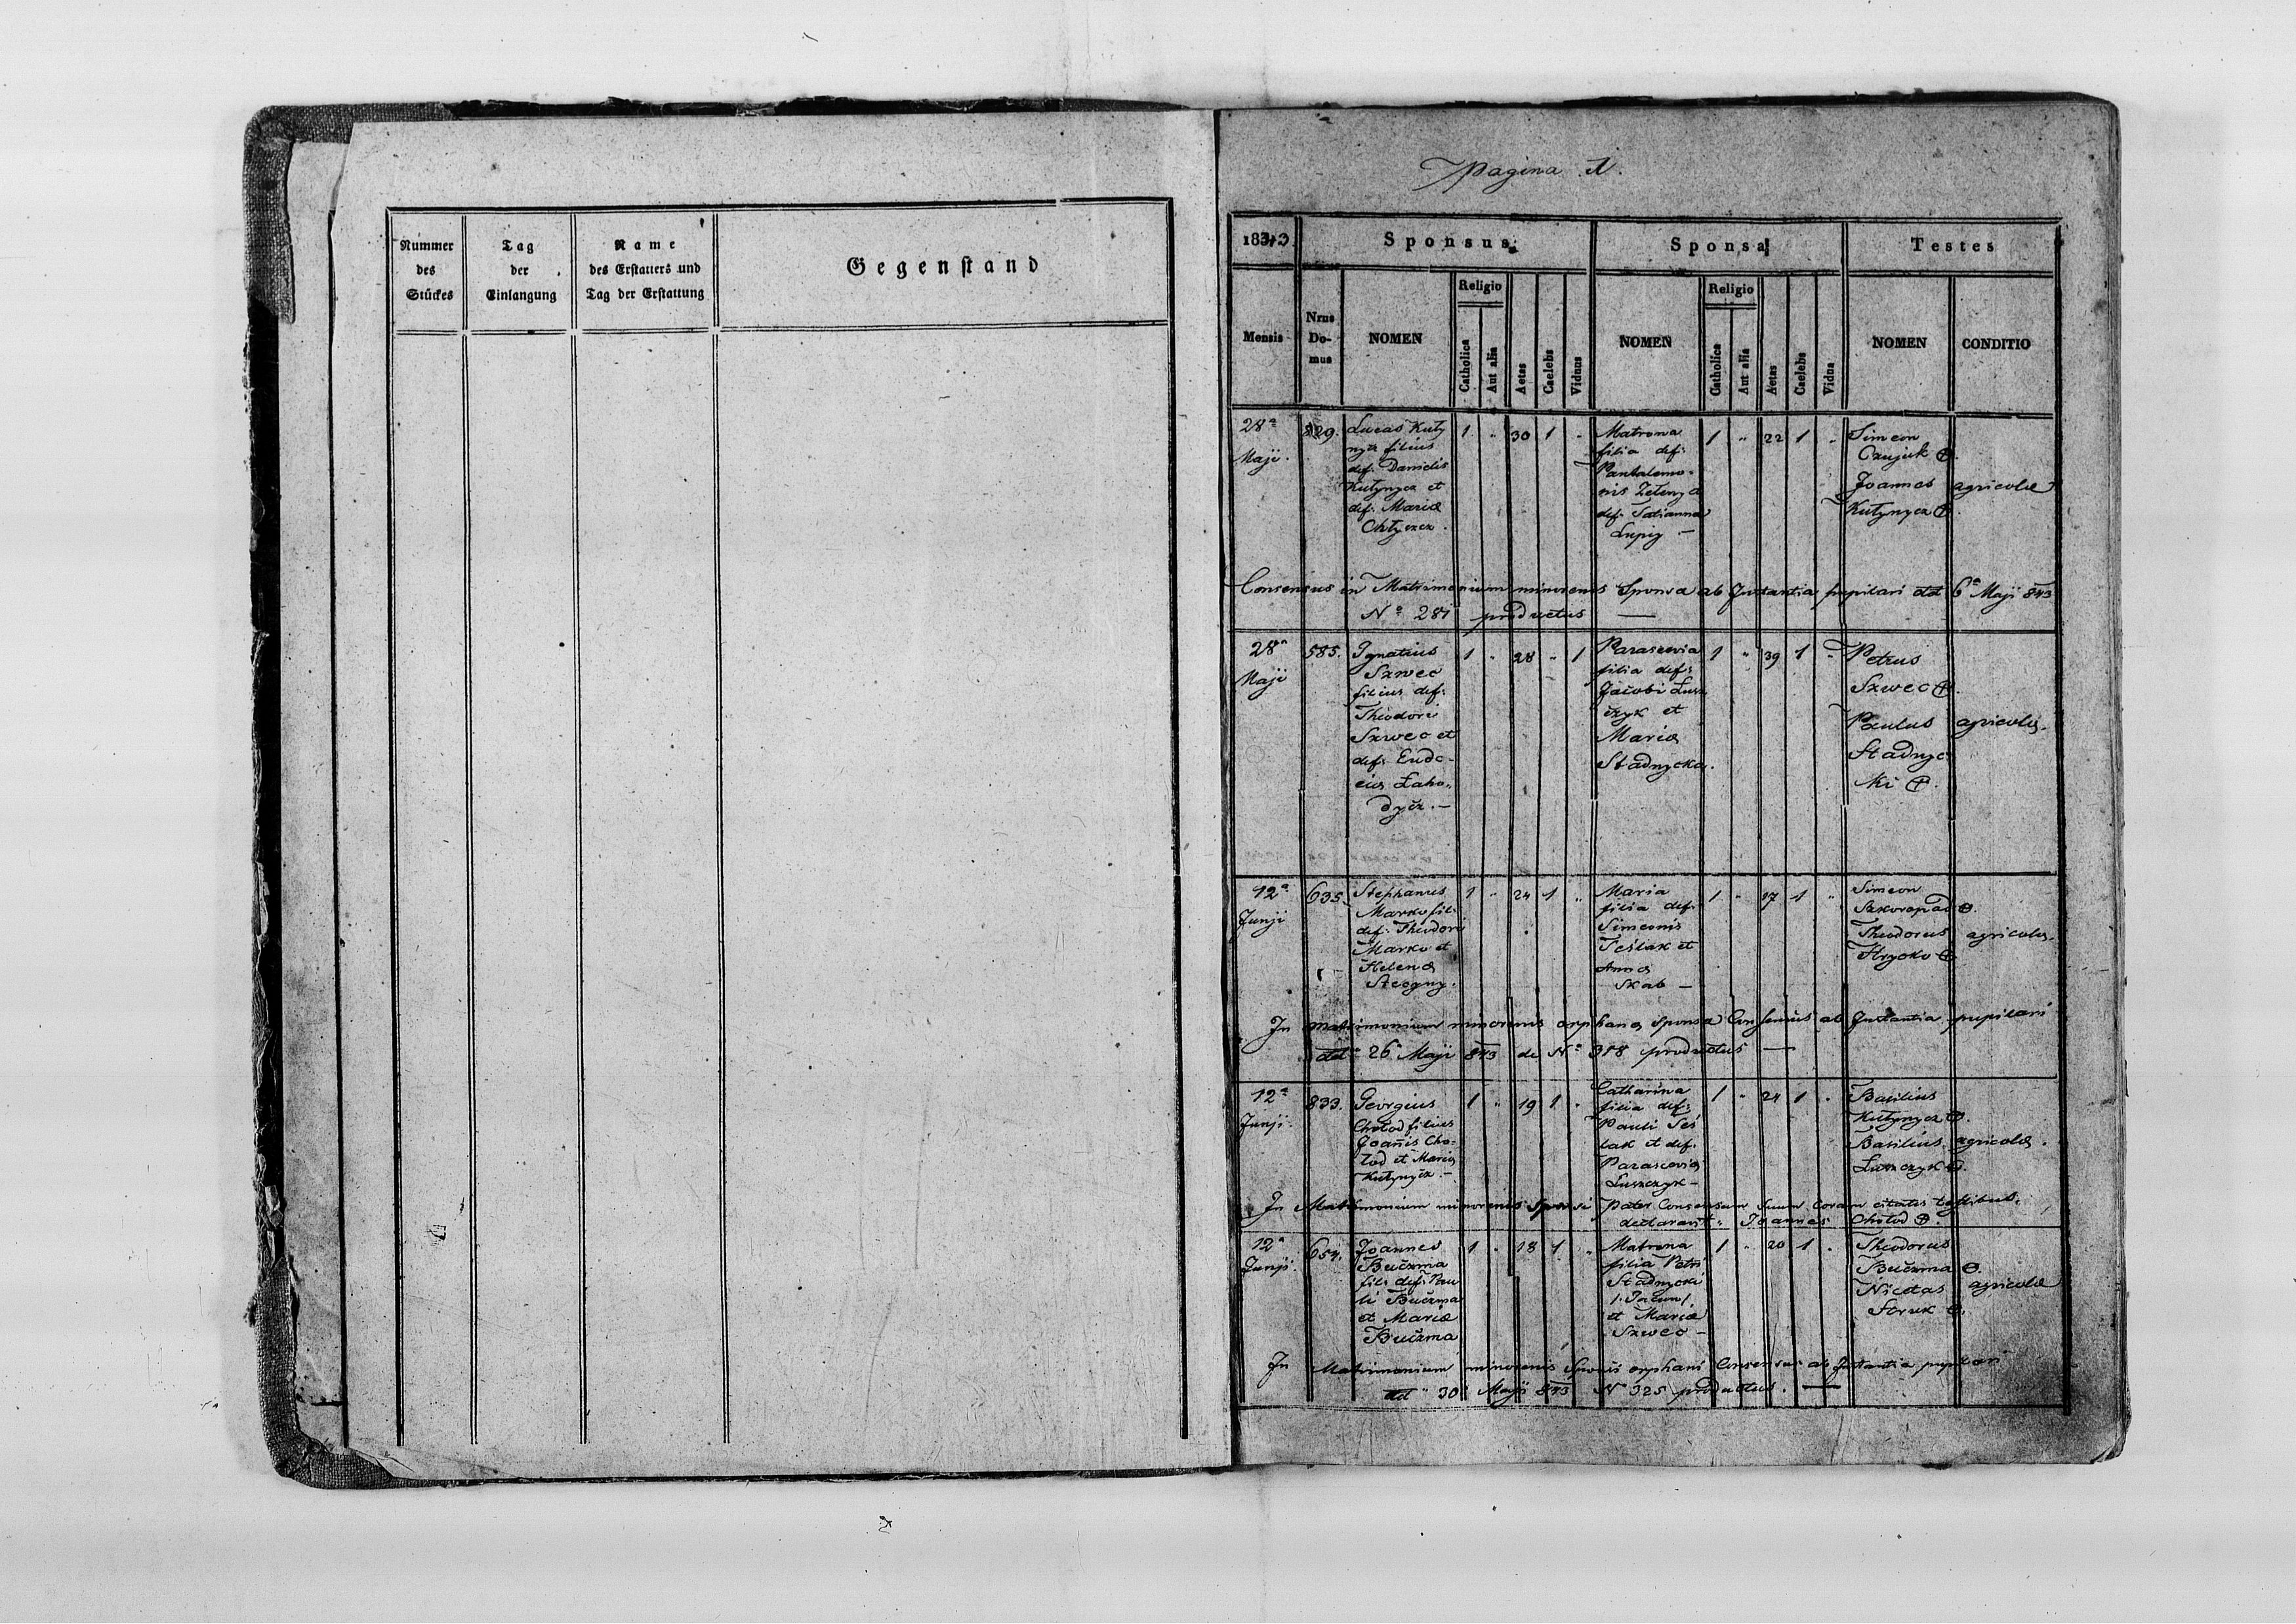 Nummer des Stückes
Tag der Einlangung
Name des Erstatters und Tag der Erstattung
Gegenstand
Pagina 1.
1843. Sponsus Sponsa Testes
Mensis Nrus Domus NOMEN Religio Catholica Aut alia Aetas Caelebs Viduus NOMEN Religio Catholica Aut alia Aetas Caelebs Vidua NOMEN CONDITIO
28ª Maji.
829.
Lucas Kuty
nycz filius
def. Danielis
Kutynycz et
def. Mariæ
1 " 30 1 "
Matrona
filia def.
Pantalemo-
nis
def. Tatianna
1 " 22 1 "
Simeon
Czujuk ⊕.
Joannes
Kutynycz ⊕.
agricolæ
Consensus in Matrimonium minorenis Sponsa ab Instantia pupilari dtd 6ª Maji 843
Nº 281 productus —
28ª
Maji
585.
Ignatius
Szwec
filius def.
Theodori
Szwec et
def. Eudo-
ciæ Łaho-
dycz. —
1 " 28 " 1
Paraszevia
filia def.
Jacobi Łusz
czyk et
Mariæ
Stadnycka.
1 " 39 1 "
Petrus
Szwec ⊕.
Paulus
Stadnyc
ki ⊕.
agricolæ.
12ª
Junji
635.
Stephanus
Marko fil.
def. Theodori
Marko et
Helenæ
1 " 24 1 "
Maria
filia def.
Simeonis
Teslak et
Annæ
Skab —
1 " 17 1 "
Simeon
Szkoropad ⊕.
Theodorus
Hrycko ⊕
agricolæ.
In matrimonium minorenis orphanæ Sponsa Consensus ab Instantia pupilari
dtd 26 Maji 843 de Nº 318 productus —
12ª
Junji.
833.
Georgius
Chołod filius
Joañis Cho-
łod et Mariæ
Kutynycz. —
1 " 19 1 "
Catharina
filia def.
Pauli Tes
lak et def.
Parascoviæ
Łuszczyk —
1 " 24 1 "
Basilius
Kutynycz ⊕.
Basilius
Łuszczyk ⊕.
agricolæ.
In Matrimonium minorenis Sponsi Pater Consensum suum coram citatis testibus
declaravit. Joannes Chołod ⊕.
12ª
Junji.
654.
Joannes
Buczma
fil. def. Pau
li Buczma
et Mariæ
Buczma
1 " 18 1 "
Matrona
filia Petri
Stadnycki
et Mariæ
Szwec —
1 " 20 1 "
Theodorus
Buczma ⊕.
Nicolas
Struk ⊕.
agricolæ
In Matrimonium minorenis Sponsi orphani Consensus ab Instantia pupilari
dtd 30 Maji 843 N 325 productus. —